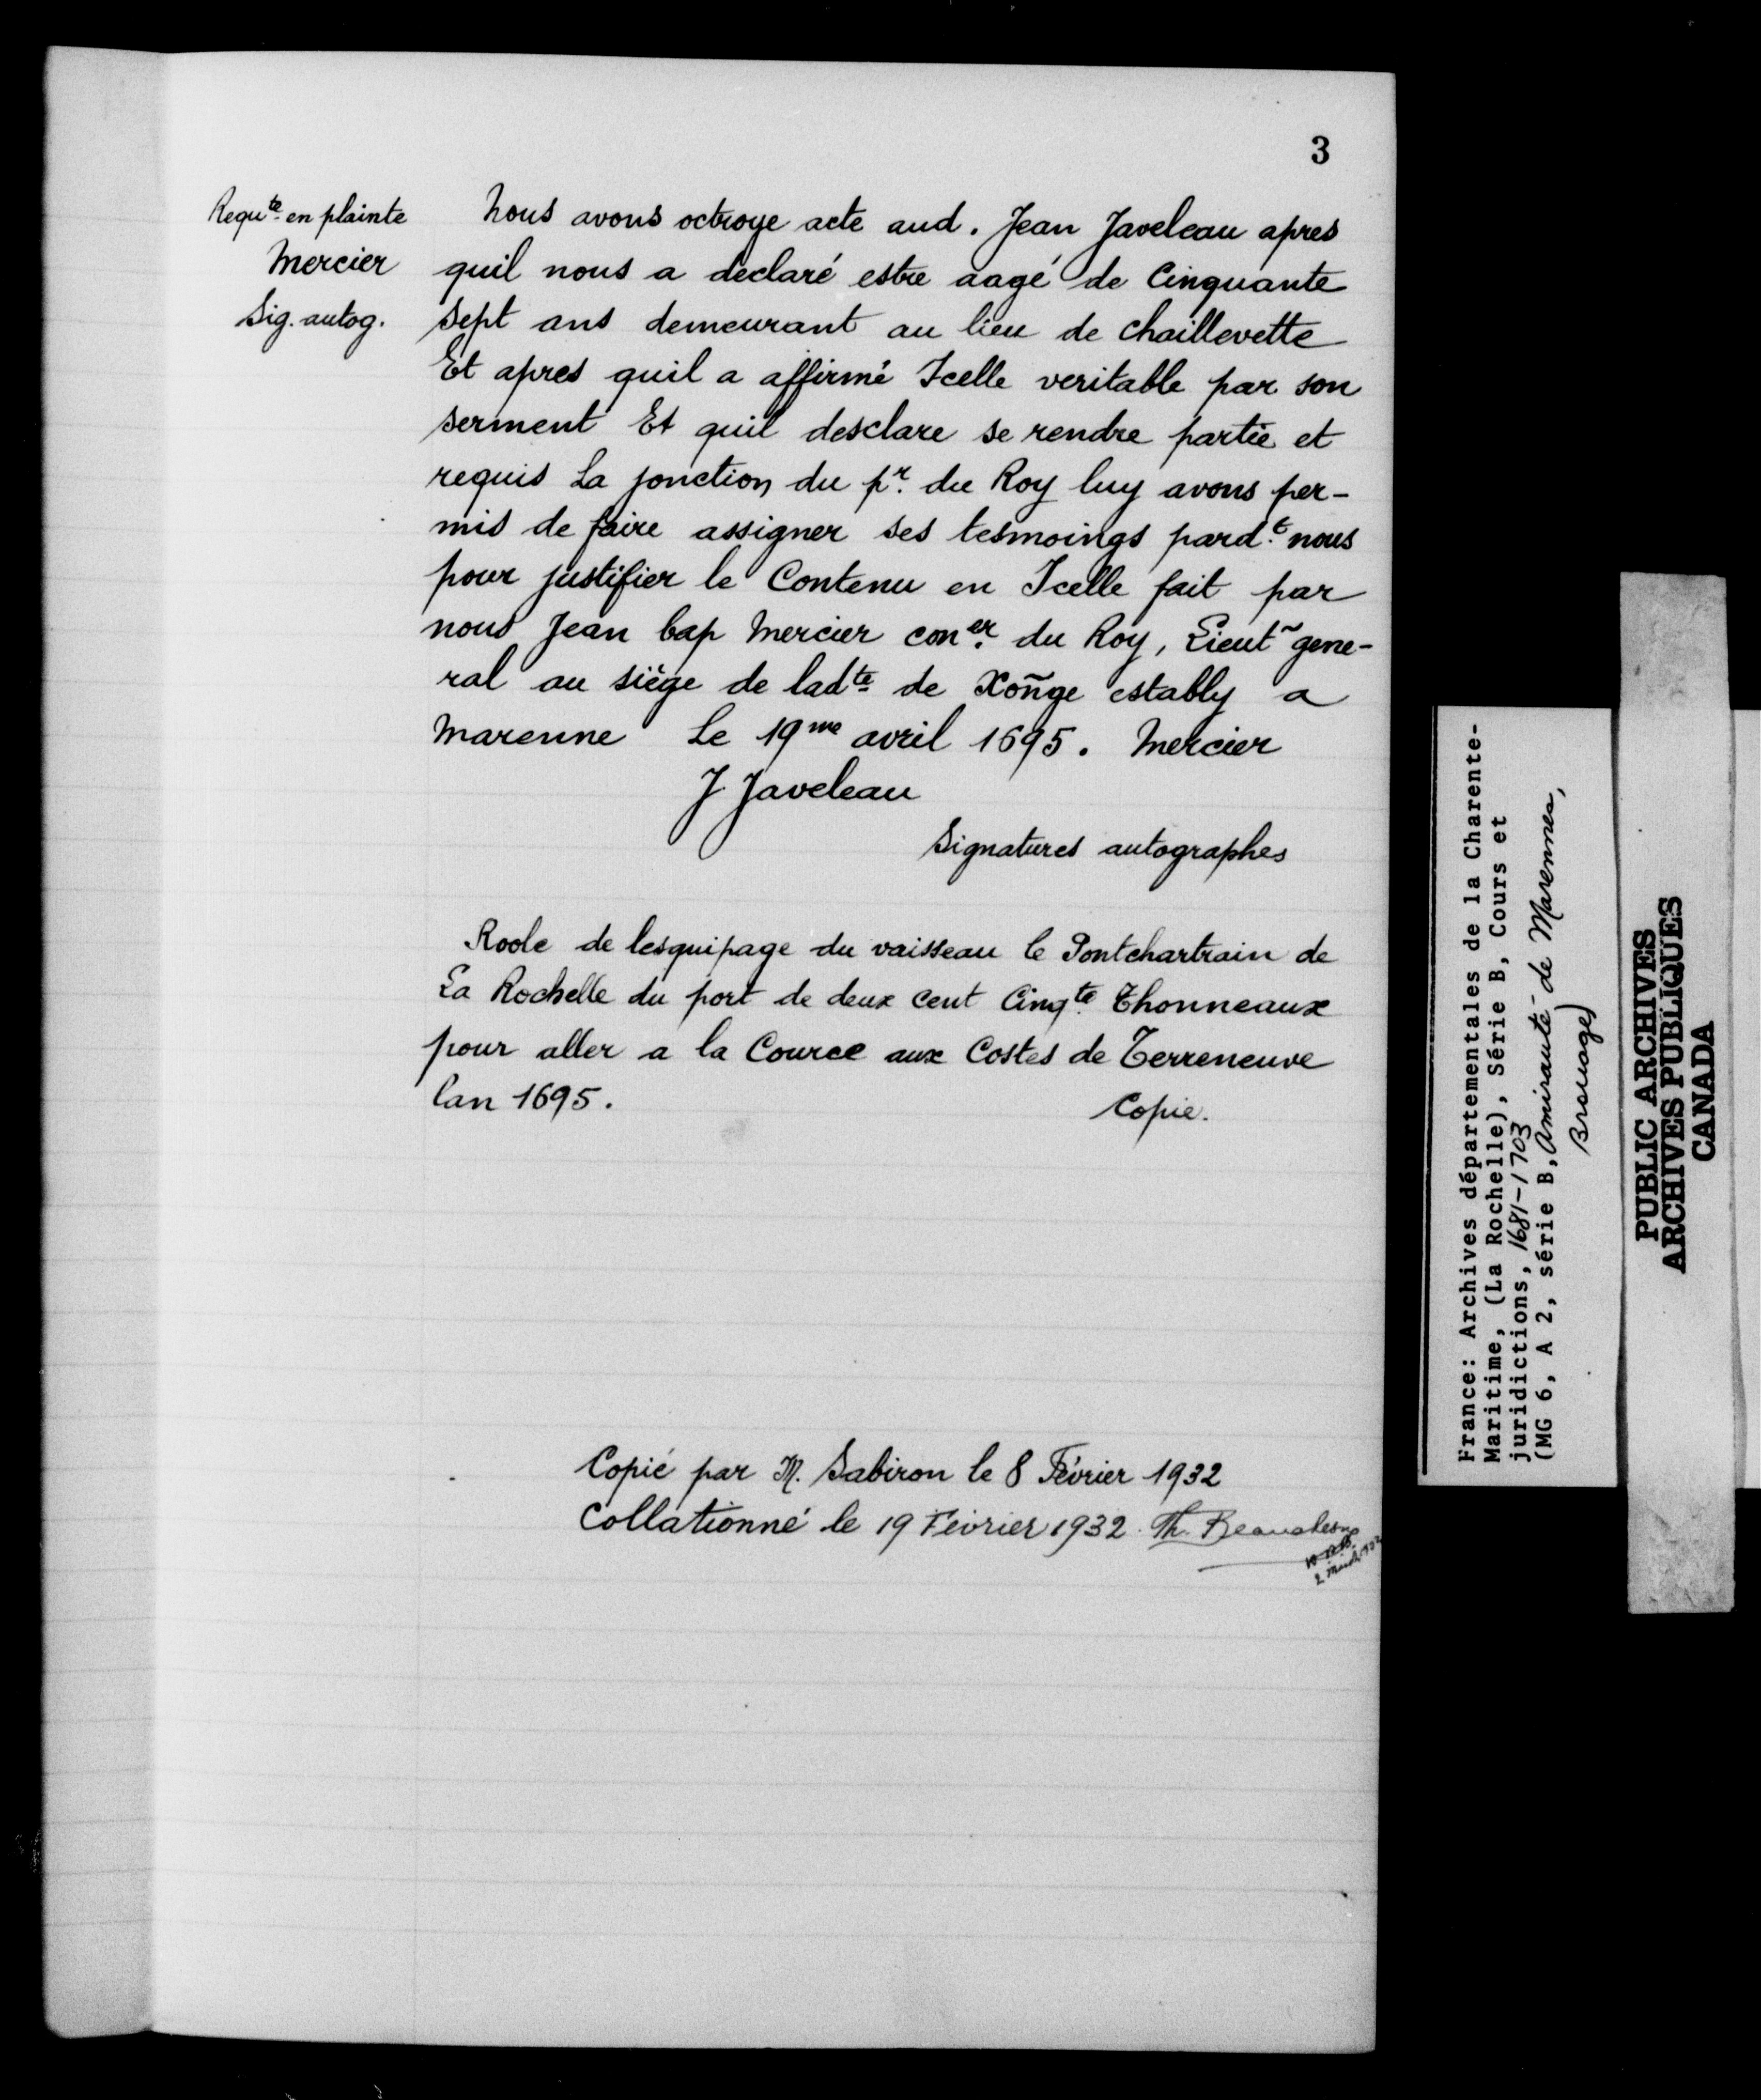 3
Requte en plainte
Mercier
Sig. autog.
Nous avons octroye acte aud. Jean Javeleau apres
quil nous a declaré estre aagé de Cinquante
sept ans demeurant au lieu de chaillevette
Et apres quil a affirmé Icelle veritable par son
serment Et quil desclare se rendre partie et
requis La jonction du pr. du Roy luy avons per-
mis de faire assigner ses tesmoings pard.t nous
pour justifier le Contenu en Icelle fait par
nous Jean bap Mercier con.er du Roy, Lieut~ gene-
ral au siège de ladte de Xoñge estably a
Marenne Le 19me avril 1695. Mercier
J. Javeleau
Signatures autographes
Roole de lesquipage du vaisseau le Pontchartrain de
La Rochelle du port de deux cent Cinqte. Thonneaux
pour aller a la Cource aux Costes de Terreneuve
lan 1695.
Copie.
Copié par M. Sabiron le 8 Février 1932
Collationné le 19 Février 1932. Th. Beauchesne
France: Archives départementales de la Charente-
Maritime, (La Rochelle), Série B, Cours et
juridictions, 1681-1703
(MG 6, A 2, série B, Amirauté de Marennes,
Brouage)
PUBLIC ARCHIVES
ARCHIVES PUBLIQUES
CANADA